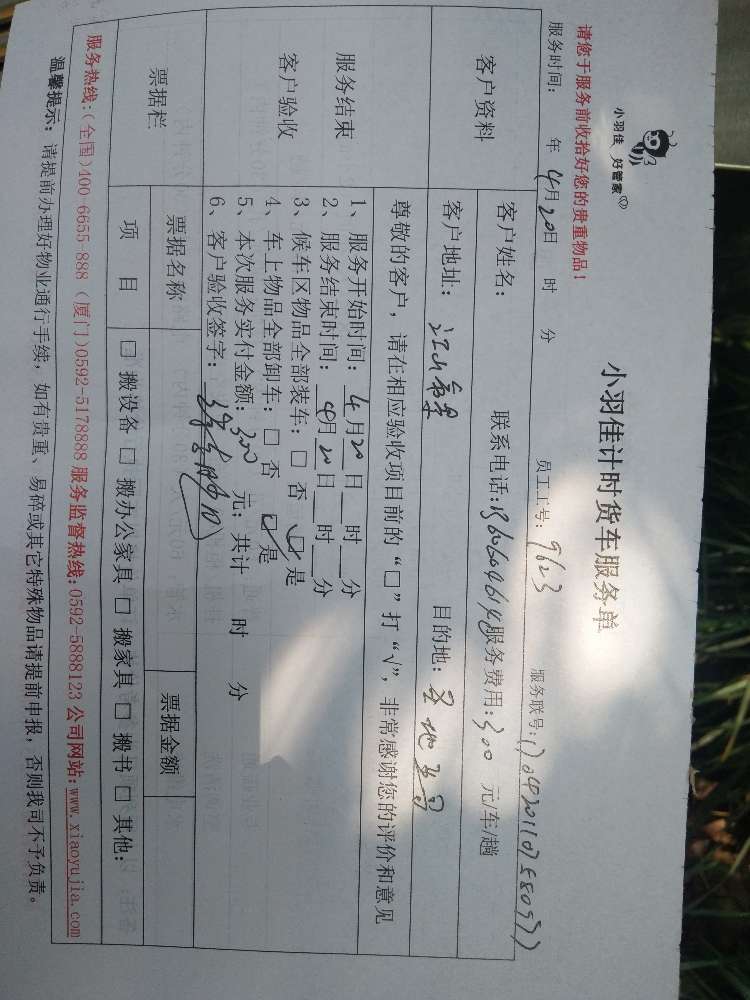 小羽佳 好管家
小羽佳计时货车服务单
请您于服务前收拾好您的贵重物品!
服务时间: 年 4月20日 时 分 员工工号: 9623 服务联号:
客户资料
客户姓名: 联系电话: 服务费用:300 元/车/趟
客户地址: 目的地:
尊敬的客户,请在相应验收项目前的“□”打“√”,非常感谢您的评价和意见
服务结束
客户验收
1、服务开始时间: 4月20日 时 分
2、服务结束时间: 4月20日 时 分
3、候车区物品全部装车:□ 否 ☑ 是
4、车上物品全部卸车:□ 否 ☑ 是
5、本次服务实付金额:300 元;共计 时 分
6、客户验收签字:
票据栏
票据名称 票据金额
项 目 □ 搬设备 □ 搬办公家具 □ 搬家具 □ 搬书 □ 其他:
服务热线:(全国)400-6655-888 (厦门)0592-5178888 服务监督热线:0592-5888123 公司网站:www.xiaoyujia.com
温馨提示:请提前办理好物业通行手续,如有贵重、易碎或其它特殊物品请提前申报,否则我司不予负责。